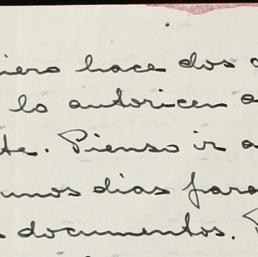 niero hace dos
lo autoricen a
te. Pienso ir a
unos días para
documentos.